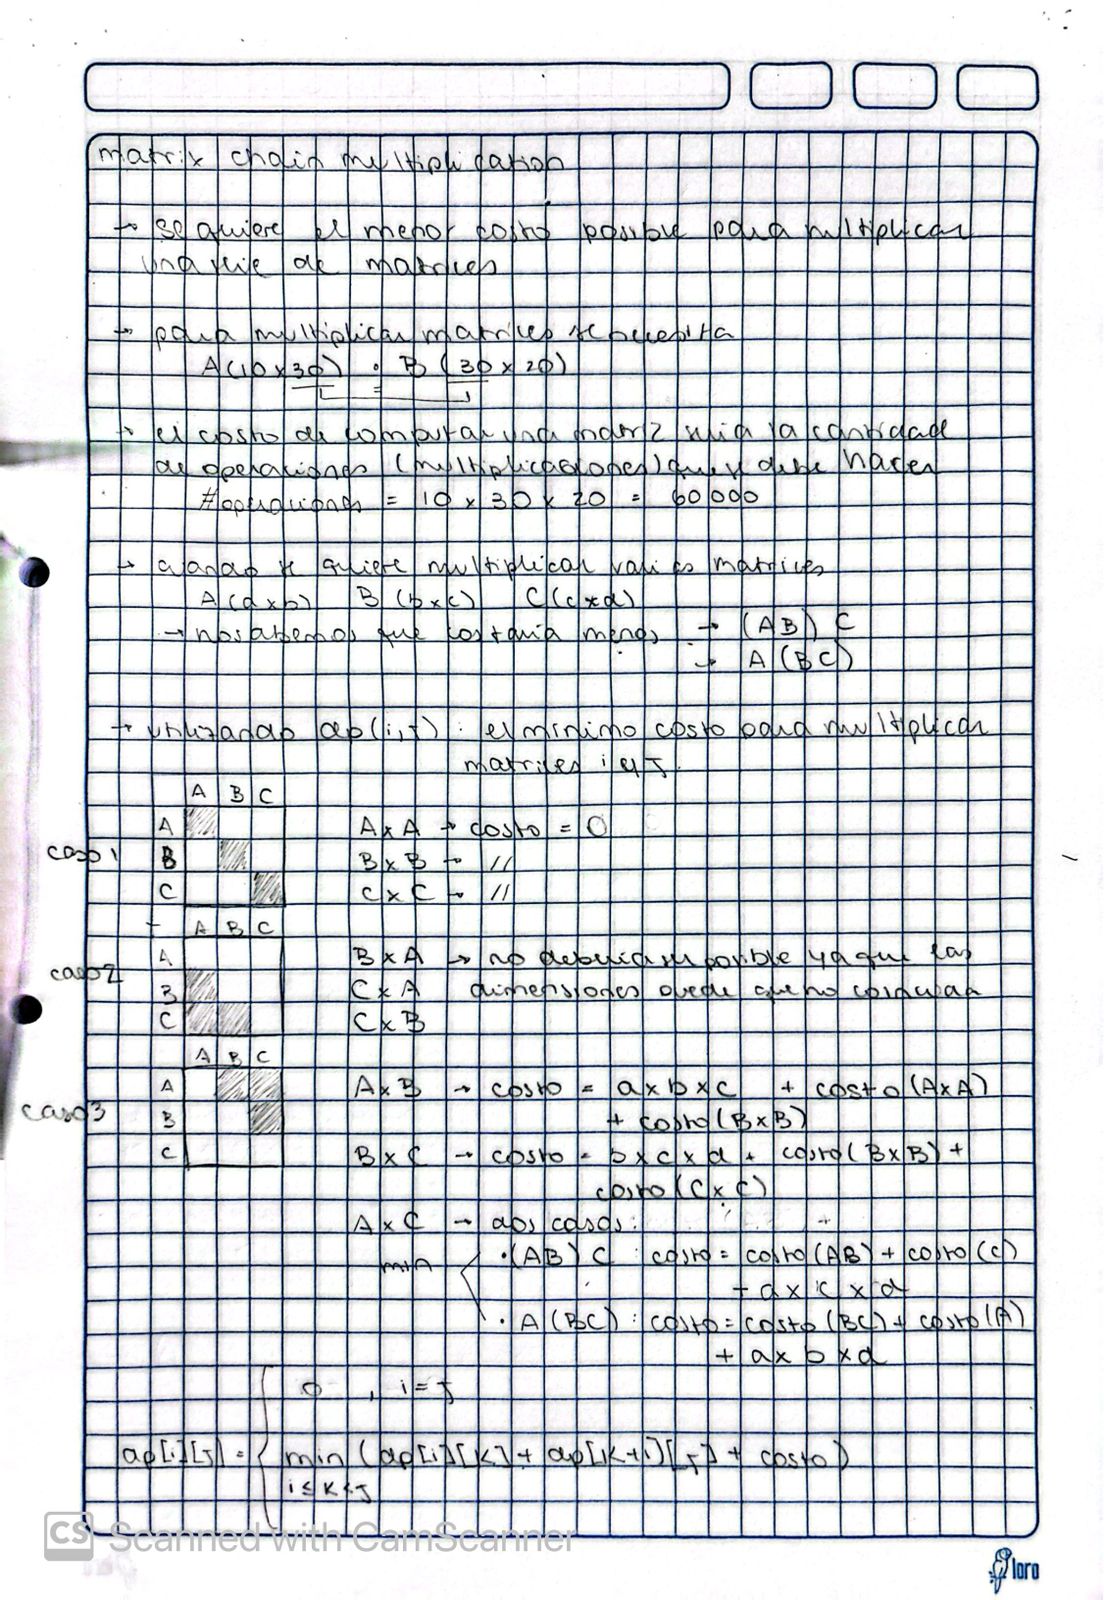 matrix chain multiplication
→ se quiere el menor costo posible para multiplicar
una serie de matrices
→ para multiplicar matrices se necesita
A(10 x 30) · B (30 x 20)
=
→ el costo de computar una matriz seria la cantidad
de operaciones (multiplicaciones) que se debe hacer
#operaciones = 10 x 30 x 20 = 60000
→ cuando se quiere multiplicar varias matrices
A(axb) B(bxc) C(cxd)
→ no sabemos que costaria menos → (AB) C
→ A (BC)
→ utilizando dp(i,j) : el minimo costo para multiplicar
matrices i y j.
A B C
A A x A → costo = 0
caso 1 B B x B → //
C C x C → //
A B C
A B x A → no deberia ser posible ya que las
caso2 B C x A dimensiones puede que no coincidan
C C x B
A B C
A A x B → costo = a x b x c + costo (A x A)
caso3 B + costo (B x B)
C B x C → costo = b x c x d + costo (B x B) +
costo (C x C)
A x C → dos casos:
min · (AB) C : costo = costo (AB) + costo (c)
+ a x c x d
· A (BC) : costo = costo (BC) + costo (A)
+ a x b x d
0 , i = j
dp[i][j] = min (dp[i][k] + dp[k+1][j] + costo)
i ≤ k < j
CS Scanned with CamScanner
loro